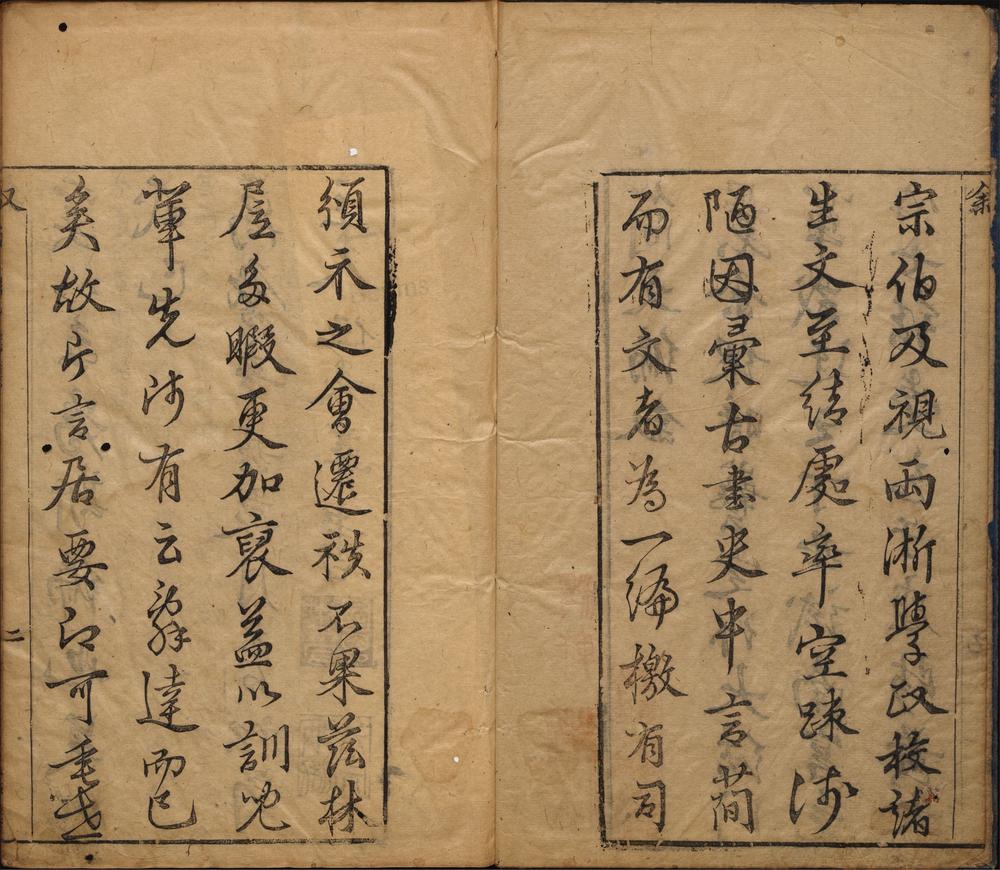 宗伯及視兩浙學政校諸
生文至結處率空踈淺
陋因彙古書史中言簡
而有文者為一編檄有司
頒示之會遷秩不果茲林
居多暇更加裒益以訓兒
軰先有云辭達而已
矣故言居要即可
余
二